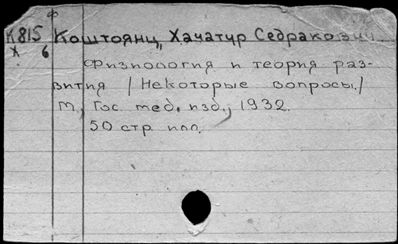 Ф
К815 Коштоянц, Хачатур Седракович
Х 6
Физиология и теория раз-
вития /Некоторые вопросы./
М, Гос. мед. изд., 1932.
50 стр илл.